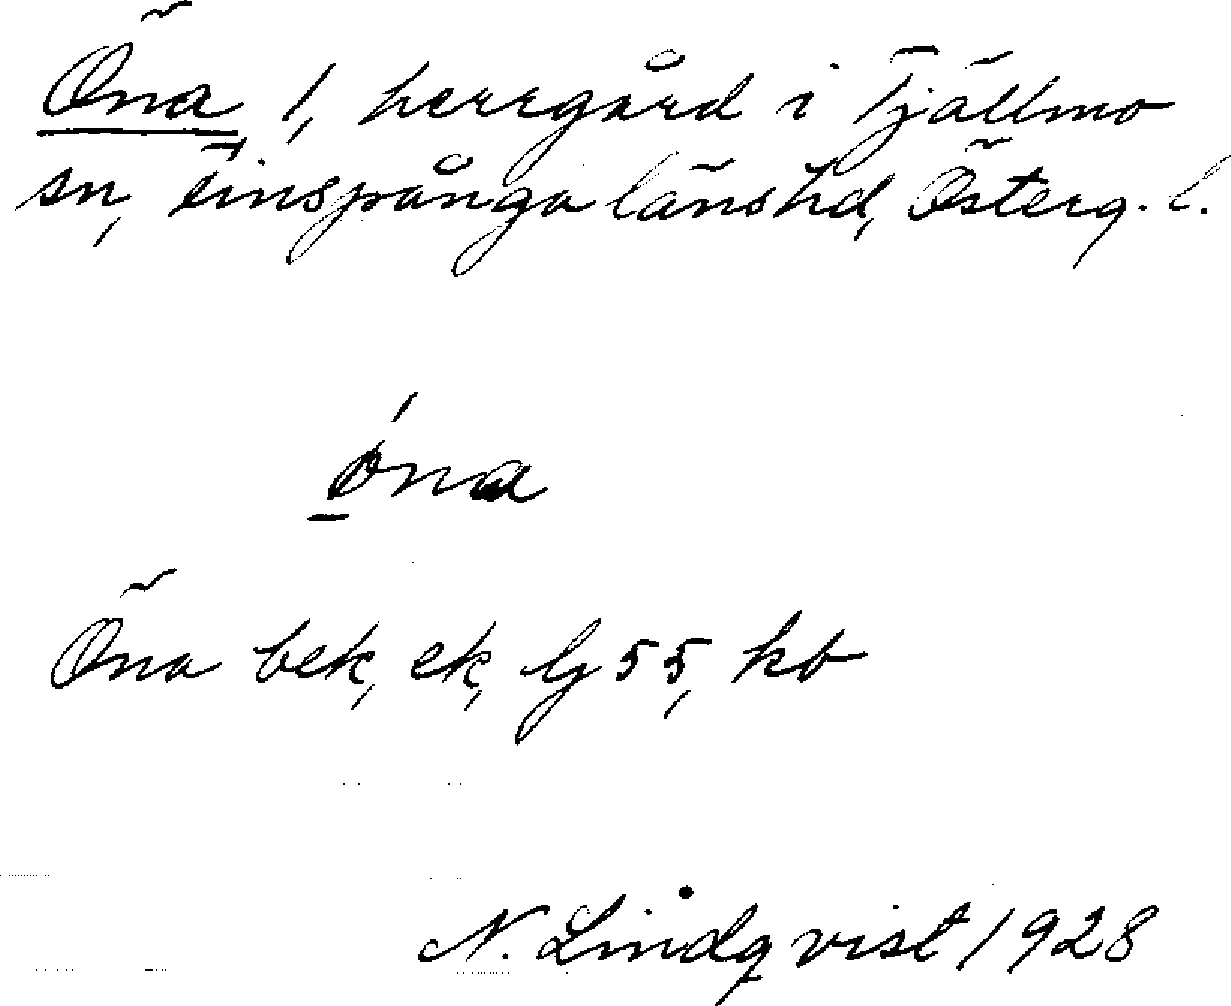 Öna 1, herrgård i Tjällmo
sn, Finspånga länshd, Österg. l.
óna
Öna bek, ek, Gj 55, kb
N. Lindqvist 1928